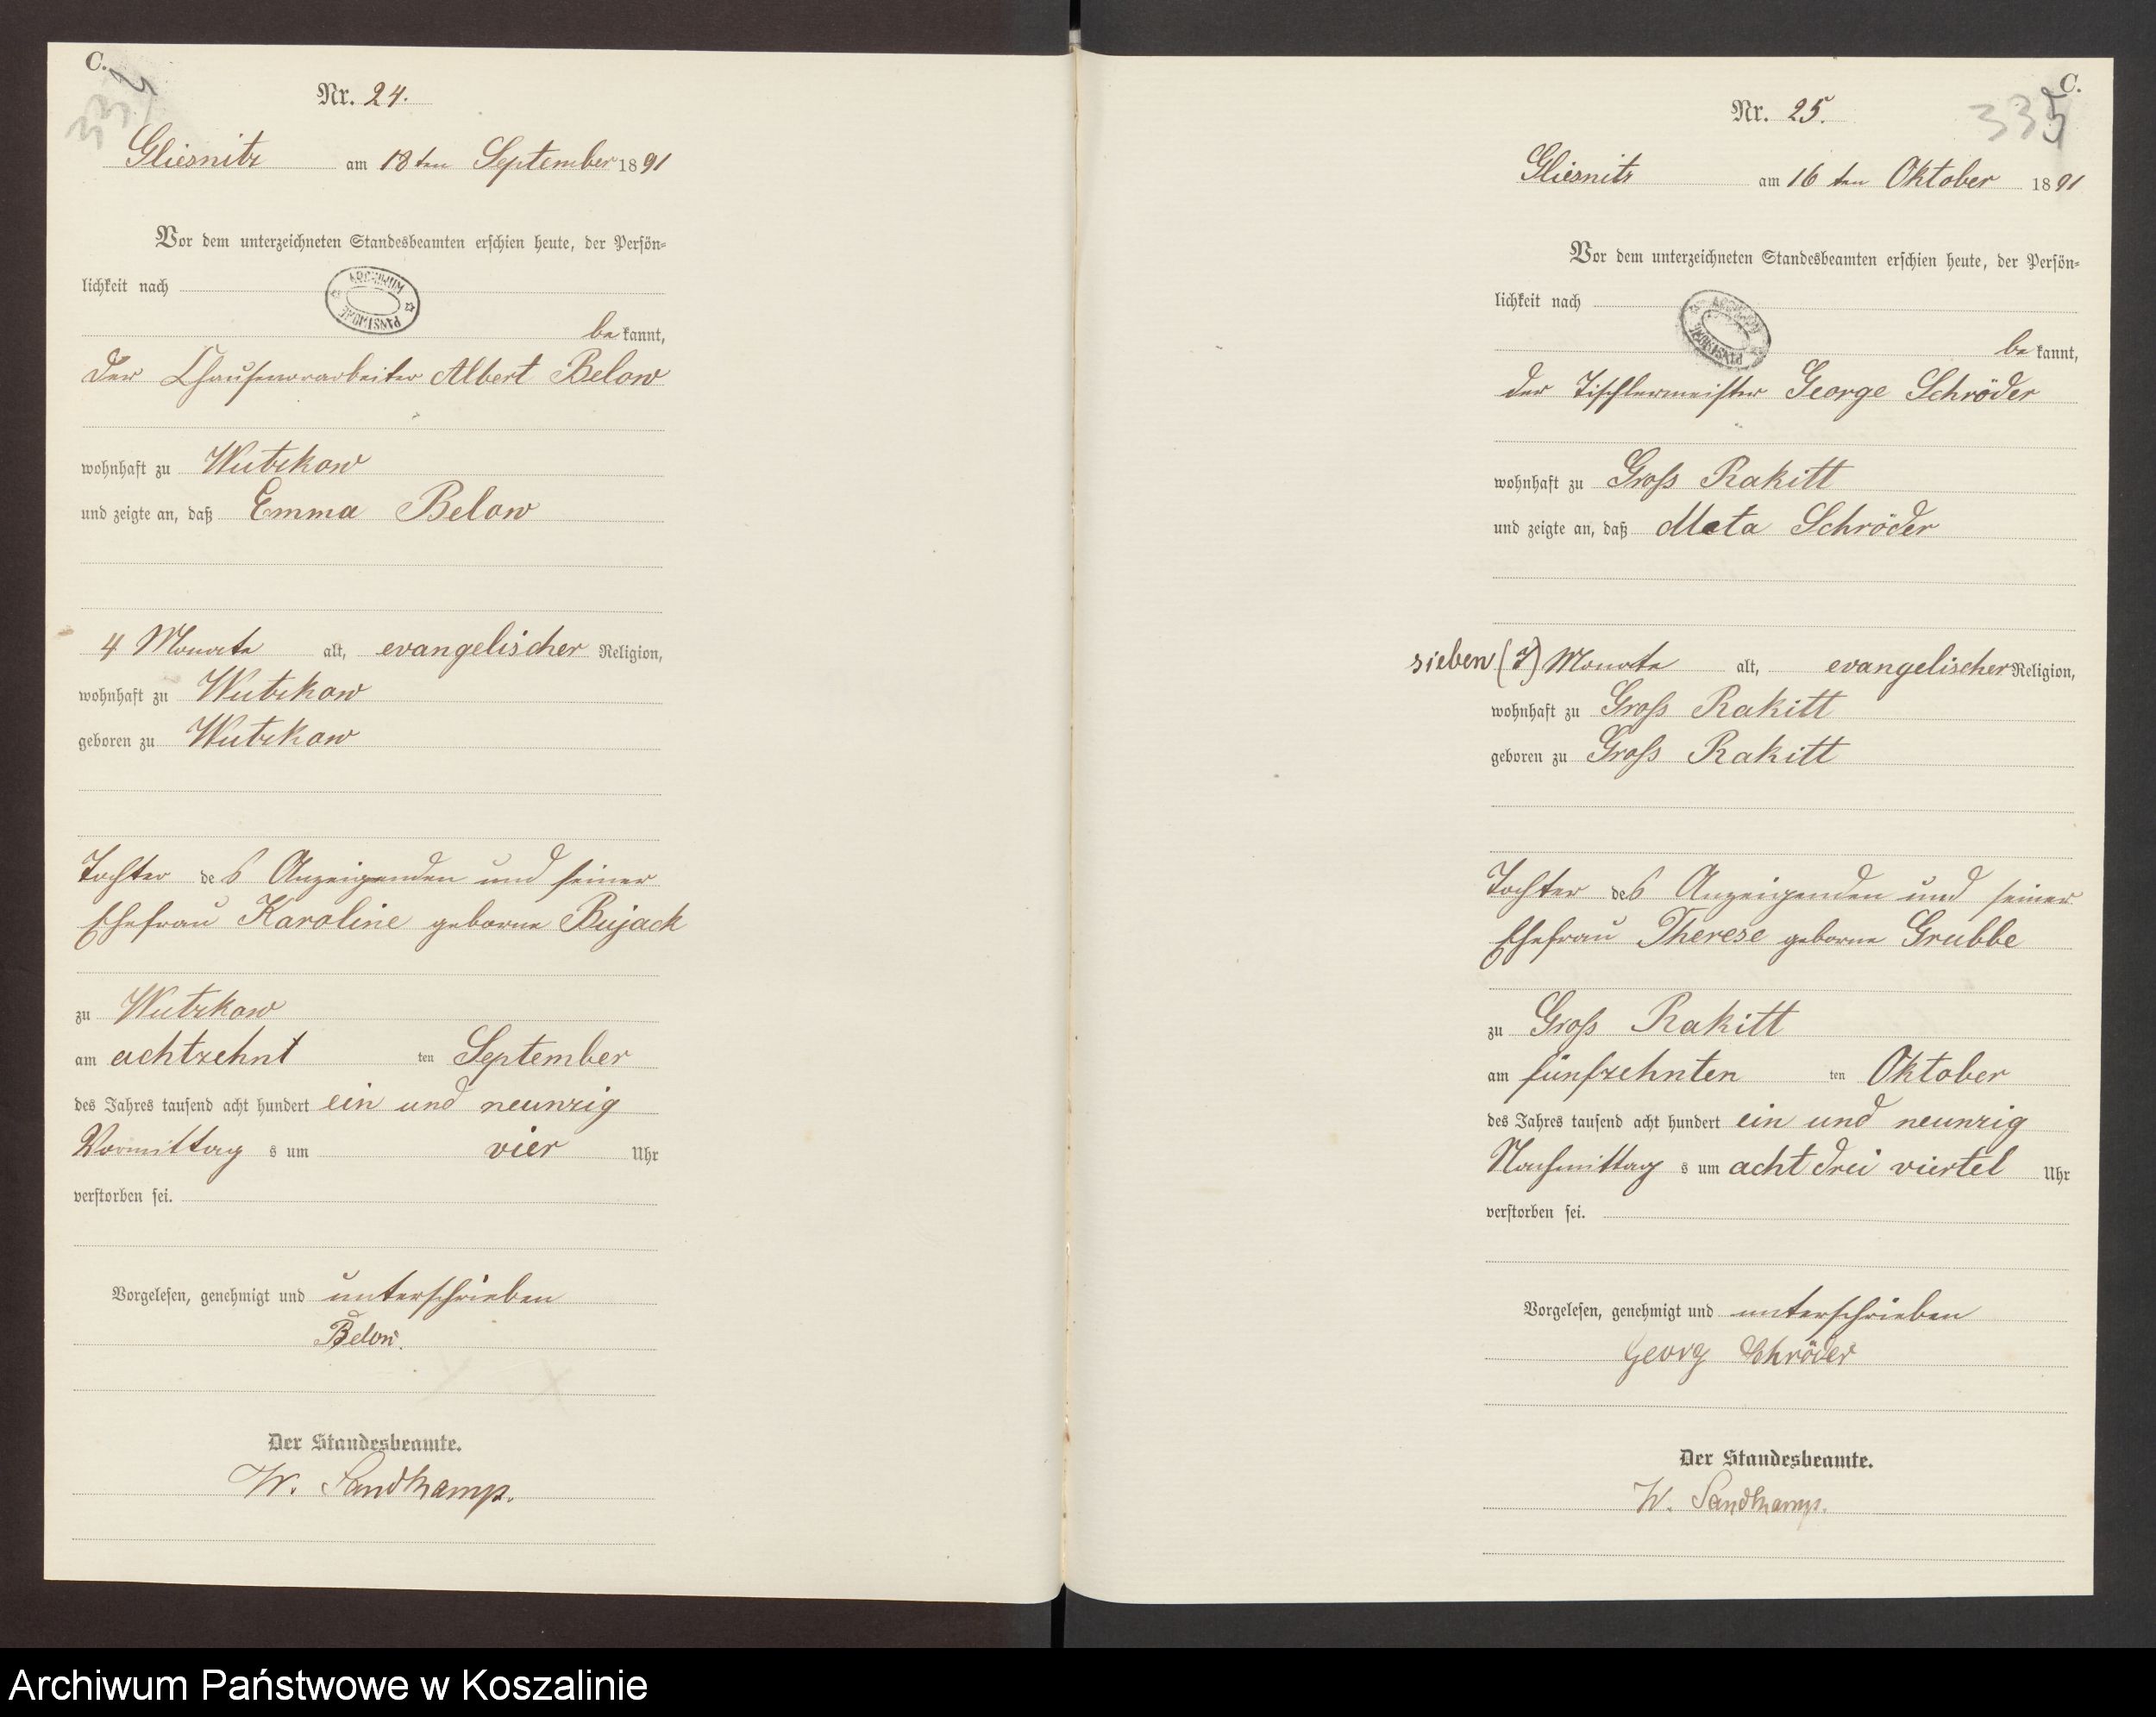 C.
334
Nr. 24.
Gliesnitz am 18ten September 1891
Vor dem unterzeichneten Standesbeamten erschien heute, der Persön-
lichkeit nach
ARCHIWUM
PAŃSTWOWE
bekannt,
der Chausseearbeiter Albert Below
wohnhaft zu Wutzkow
und zeigte an, daß Emma Below
4 Monate alt, evangelischer Religion,
wohnhaft zu Wutzkow
geboren zu Wutzkow
Tochter des Anzeigenden und seiner
Ehefrau Karoline geborne Bujack
zu Wutzkow
am achtzehnt ten September
des Jahres tausend acht hundert ein und neunzig
Vormittag s um vier Uhr
verstorben sei.
Vorgelesen, genehmigt und unterschrieben
Below.
Der Standesbeamte.
W. Sandkamp.
C.
335
Nr. 25.
Gliesnitz am 16ten Oktober 1891
Vor dem unterzeichneten Standesbeamten erschien heute, der Persön-
lichkeit nach
ARCHIWUM
PAŃSTWOWE
bekannt,
der Tischlermeister George Schröder
wohnhaft zu Groß Rakitt
und zeigte an, daß Meta Schröder
sieben (7) Monate alt, evangelischer Religion,
wohnhaft zu Groß Rakitt
geboren zu Groß Rakitt
Tochter des Anzeigenden und seiner
Ehefrau Therese geborne Grubbe
zu Groß Rakitt
am fünfzehnten ten Oktober
des Jahres tausend acht hundert ein und neunzig
Nachmittag s um acht drei viertel Uhr
verstorben sei.
Vorgelesen, genehmigt und unterschrieben
Georg Schröder
Der Standesbeamte.
W. Sandkamp.
Archiwum Państwowe w Koszalinie